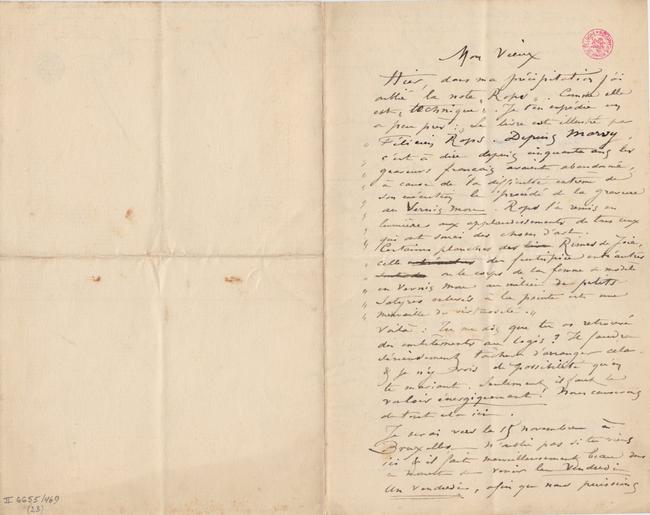 Mon Vieux
Hier dans ma précipitation j'ai
oublié la note „Rops". Comme elle
est „technique". Je t'en expédie un
à peu près : „Le livre est illustré par
„ Félicien Rops. Depuis Marvy,
„ c'est à dire depuis cinquante ans les
„ graveurs français avaient abandonné,
„ à cause de la difficulté extrême de
„ son exécution le procédé de la gravure
„ au Vernis mou. Rops l'a remis en
„ lumière aux applaudissements de tous ceux
„ qui ont souci des choses d'art.
„ Certaines planches des Rimes de joie,
„ celle du frontispice entre autres
„ où le corps de la femme a modelé
„ en vernis mou au milieu de petits
„ satyres exécutés à la pointe est une
„ merveille de virtuosité."
Voilà : Tu me dis que tu as retrouvé
des embêtements au logis ? Il faudra
sérieusement tâcher d'arranger cela
& je n'y vois de possibilité qu'en
te mariant. Seulement il faut le
vouloir énergiquement ! Nous causerons
de tout cela ici.
Je serai vers le 15 novembre à
Bruxelles. N'oublie pas si tu viens
ici & il fait merveilleusement beau
de venir le Vendredi
un vendredi, afin que nous puissions
II 6655/469
(23)